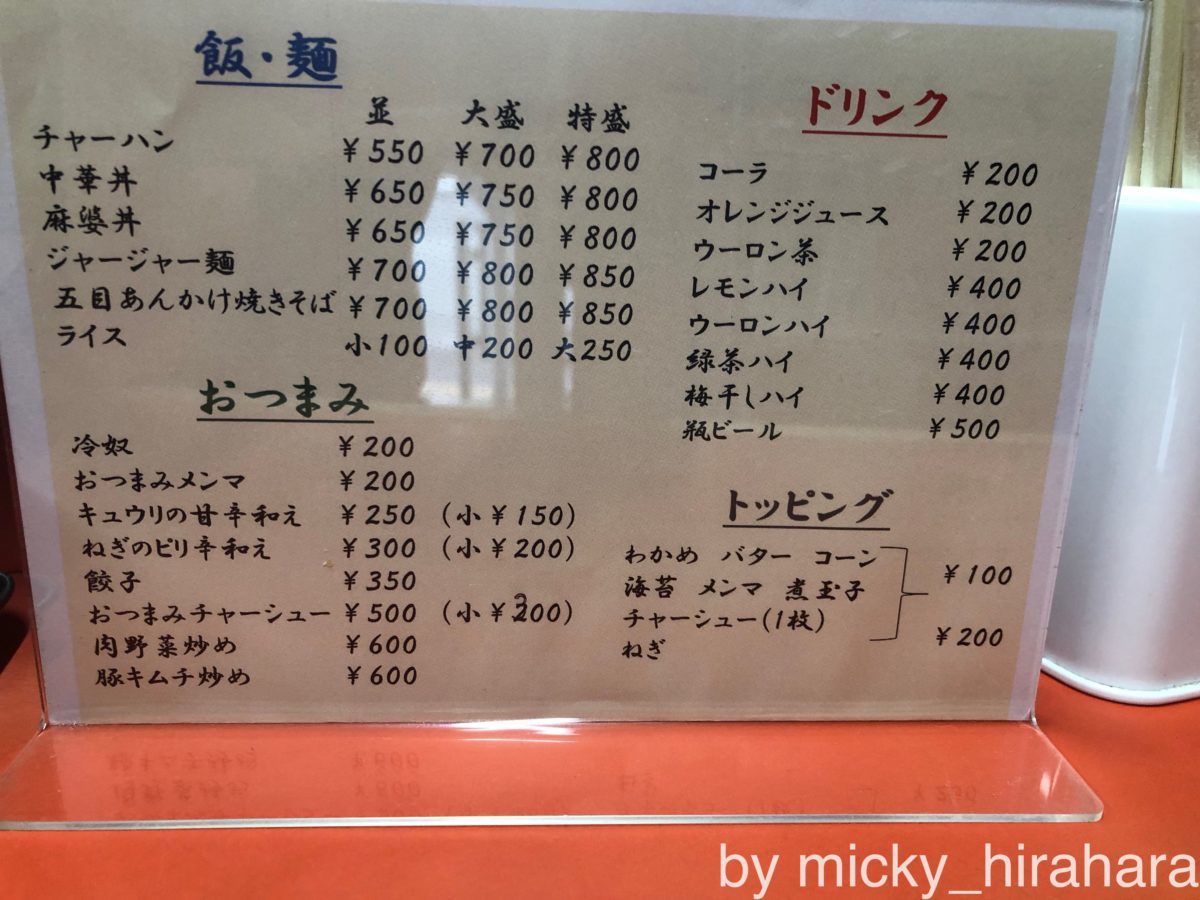 飯・麺
並 大盛 特盛
チャーハン ¥550 ¥700 ¥800
中華丼 ¥650 ¥750 ¥800
麻婆丼 ¥650 ¥750 ¥800
ジャージャー麺 ¥700 ¥800 ¥850
五目あんかけ焼きそば ¥700 ¥800 ¥850
ライス 小100 中200 大250
おつまみ
冷奴 ¥200
おつまみメンマ ¥200
キュウリの甘辛和え ¥250 (小¥150)
ねぎのピリ辛和え ¥300 (小¥200)
餃子 ¥350
おつまみチャーシュー ¥500 (小¥300)
肉野菜炒め ¥600
豚キムチ炒め ¥600
ドリンク
コーラ ¥200
オレンジジュース ¥200
ウーロン茶 ¥200
レモンハイ ¥400
ウーロンハイ ¥400
緑茶ハイ ¥400
梅干しハイ ¥400
瓶ビール ¥500
トッピング
わかめ バター コーン
海苔 メンマ 煮玉子 ¥100
チャーシュー(1枚)
ねぎ ¥200
by micky_hirahara